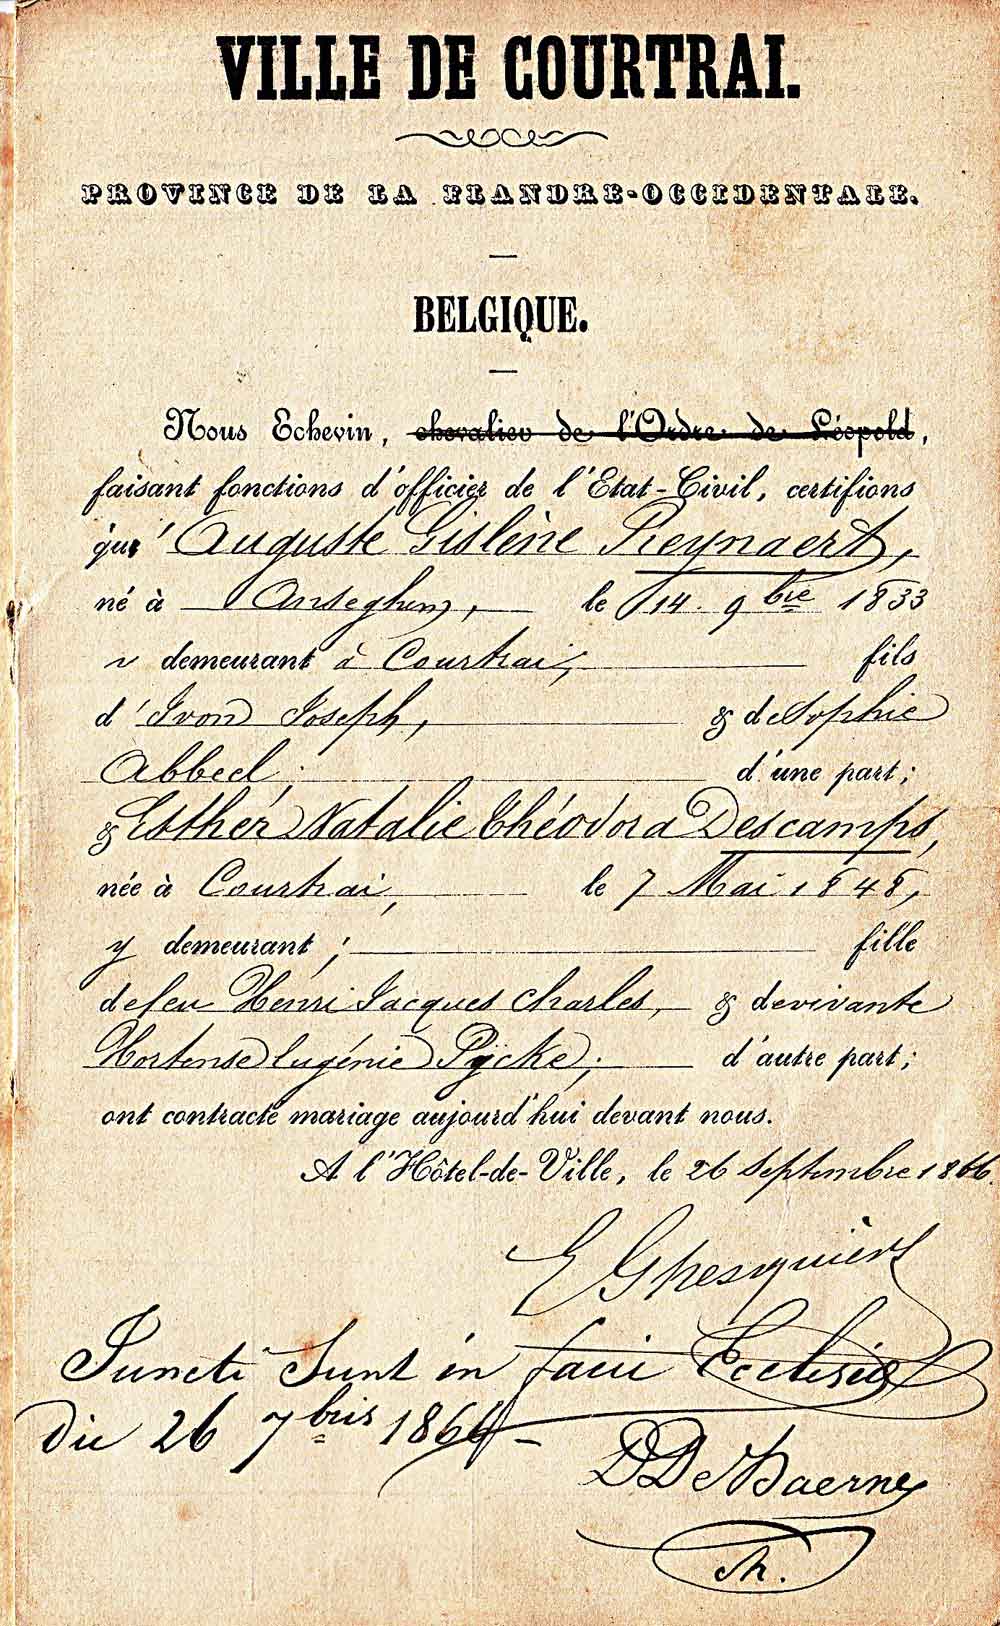 VILLE DE COURTRAI.
PROVINCE DE LA FLANDRE-OCCIDENTALE.
BELGIQUE.
Nous Echevin, chevalier de l'Ordre de Léopold,
faisant fonctions d'officier de l'Etat-Civil, certifions
que Auguste Gislène Reynaert,
né à Anseghem, le 14. 9bre 1833
demeurant à Courtrai, fils
d'Ivon Joseph, & de Sophie
Abbeel d'une part;
& Esther Natalie Théodora Descamps,
née à Courtrai, le 7 Mai 1848,
y demeurant; fille
de feu Henri Jacques Charles, & de vivante
Hortense Eugénie Pycke; d'autre part;
ont contracté mariage aujourd'hui devant nous.
A l'Hôtel-de-Ville, le 26 Septembre 1866.
E Ghesquiere
Juncti Sunt in facie Ecclesiæ
die 26 7bris 1866
D De Haerne